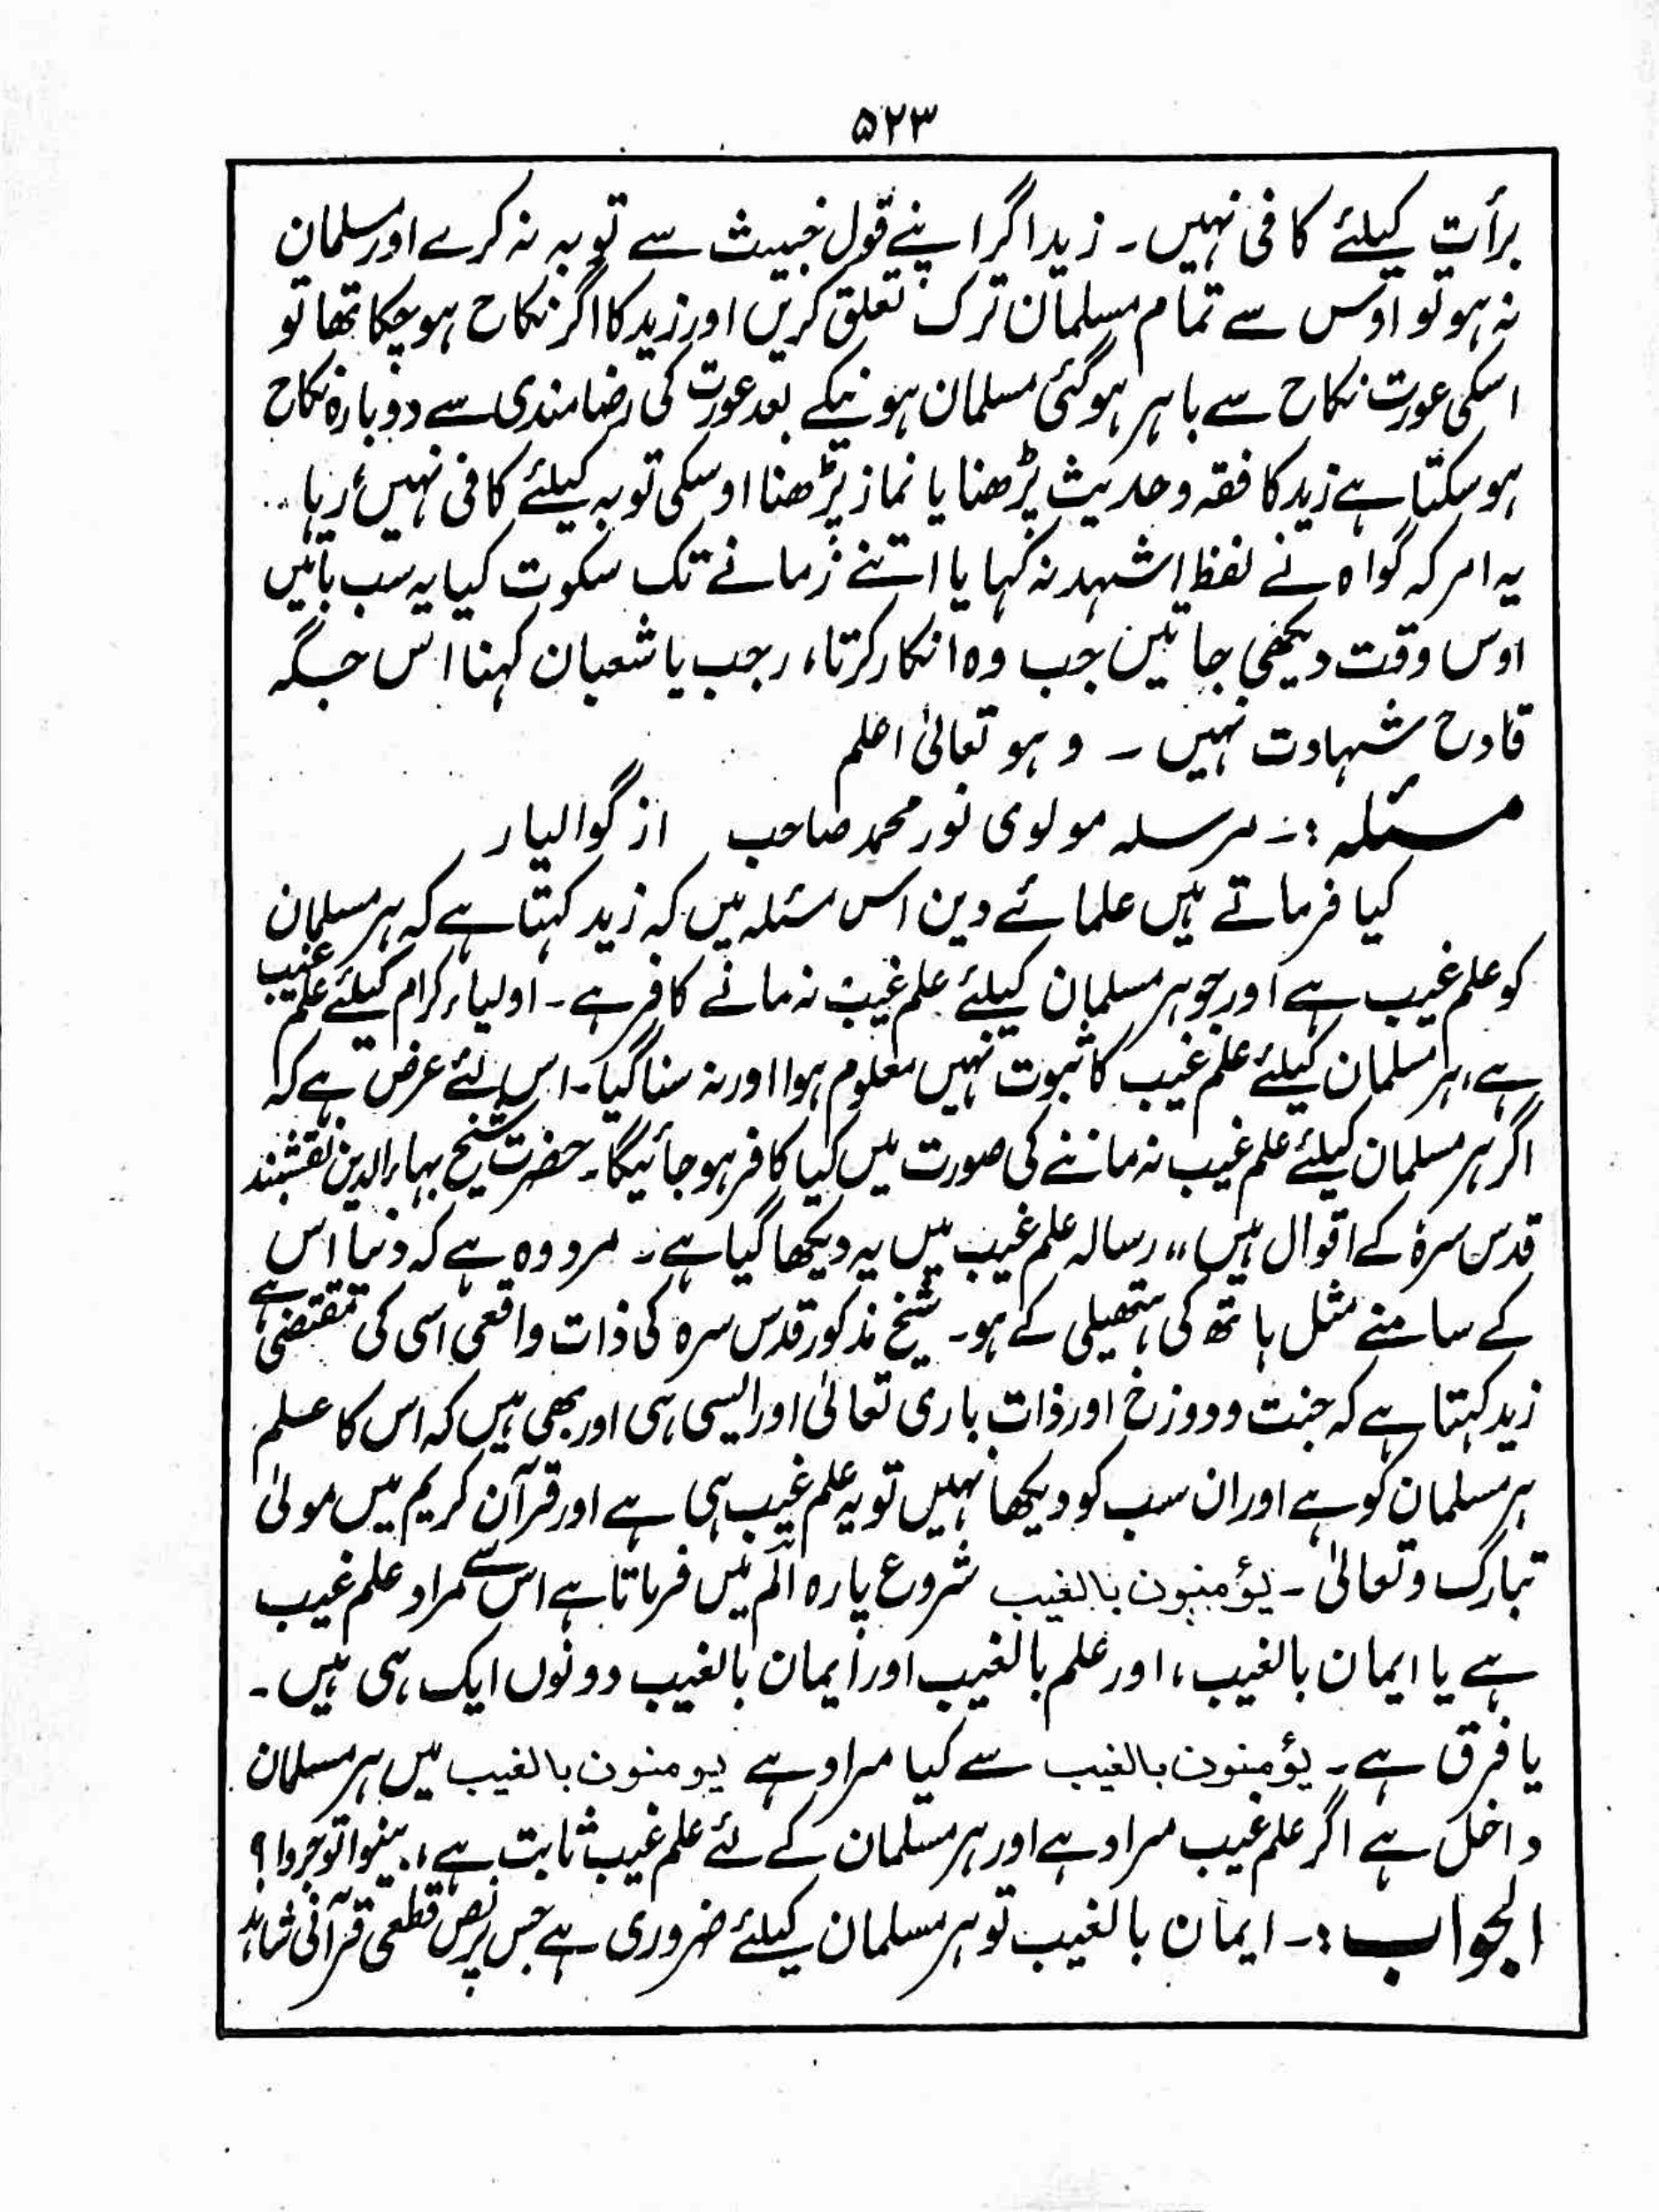 ۵۲۳
برأت کیلئے کافی نہیں۔ زید اگر اپنے قول خبیث سے توبہ نہ کرے اور مسلمان
نہ ہو تو اوس سے تمام مسلمان ترک تعلق کریں اور زید کا اگر نکاح ہو چکا تھا تو
اسکی عورت نکاح سے باہر ہو گئی مسلمان ہونیکے بعد عورت کی رضامندی سے دوبارہ نکاح
ہو سکتا ہے زید کا فقہ و حدیث پڑھنا یا نماز پڑھنا اوسکی توبہ کیلئے کافی نہیں رہا۔۔
یہ امر کہ گواہ نے لفظ اشہد نہ کہا یا اتنے زمانے تک سکوت کیا یہ سب باتیں
اوس وقت دیکھی جاتیں جب وہ انکار کرتا، رجب یا شعبان کہنا اس جگہ
قادح شہادت نہیں ۔ و ہو تعالیٰ اعلم
مسئلہ :۔ مرسلہ مولوی نور محمد صاحب از گوالیار
کیا فرماتے ہیں علمائے دین اس مسئلہ میں کہ زید کہتا ہے کہ ہر مسلمان
کو علم غیب ہے اور جو ہر مسلمان کیلئے علم غیب نہ مانے کافر ہے۔ اولیاء کرام کیلئے علم غیب
ہے، ہر مسلمان کیلئے علم غیب کا ثبوت نہیں معلوم ہوا اور نہ سنا گیا۔ اس لئے عرض ہے کہ
اگر ہر مسلمان کیلئے علم غیب نہ ماننے کی صورت میں کیا کافر ہو جائیگا۔ حضرت شیخ بہاء الدین نقشبند
قدس سرہٗ کے اقوال ہیں،، رسالہ علم غیب میں یہ دیکھا گیا ہے۔ مرد وہ ہے کہ دنیا اس
کے سامنے مثل ہاتھ کی ہتھیلی کے ہو۔ شیخ مذکور قدس سرہ کی ذات واقعی اسی کی مقتضی ہے
زید کہتا ہے کہ جنت و دوزخ اور ذات باری تعالیٰ اور ایسی ہی اور بھی ہیں کہ اس کا علم
ہر مسلمان کو ہے اور ان سب کو دیکھا نہیں تو یہ علم غیب ہی ہے اور قرآن کریم میں مولیٰ
تبارک و تعالیٰ ۔ یؤمنون بالغیب شروع پارہ الٓم میں فرماتا ہے اس سے مراد علم غیب
ہے یا ایمان بالغیب، اور علم بالغیب اور ایمان بالغیب دونوں ایک ہی ہیں۔
یا فرق ہے۔ یؤمنون بالغیب سے کیا مراد ہے یومنون بالغیب میں ہر مسلمان
داخل ہے اگر علم غیب مراد ہے اور ہر مسلمان کے لئے علم غیب ثابت ہے، بینوا توجروا؟
الجواب :۔ ایمان بالغیب تو ہر مسلمان کیلئے ضروری ہے جس پر نص قطعی قرآنی شاہد